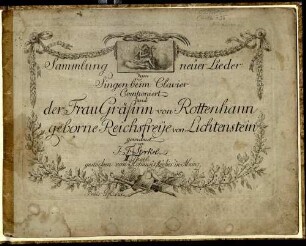 Sammlung neuer Lieder
zum
Singen beim Clavier
Componiert
und
der Frau Gräfinn von Rottenhann
geborne Reichsfreije von Lichtenstein
gewidmet
von
J. F. Sterkel